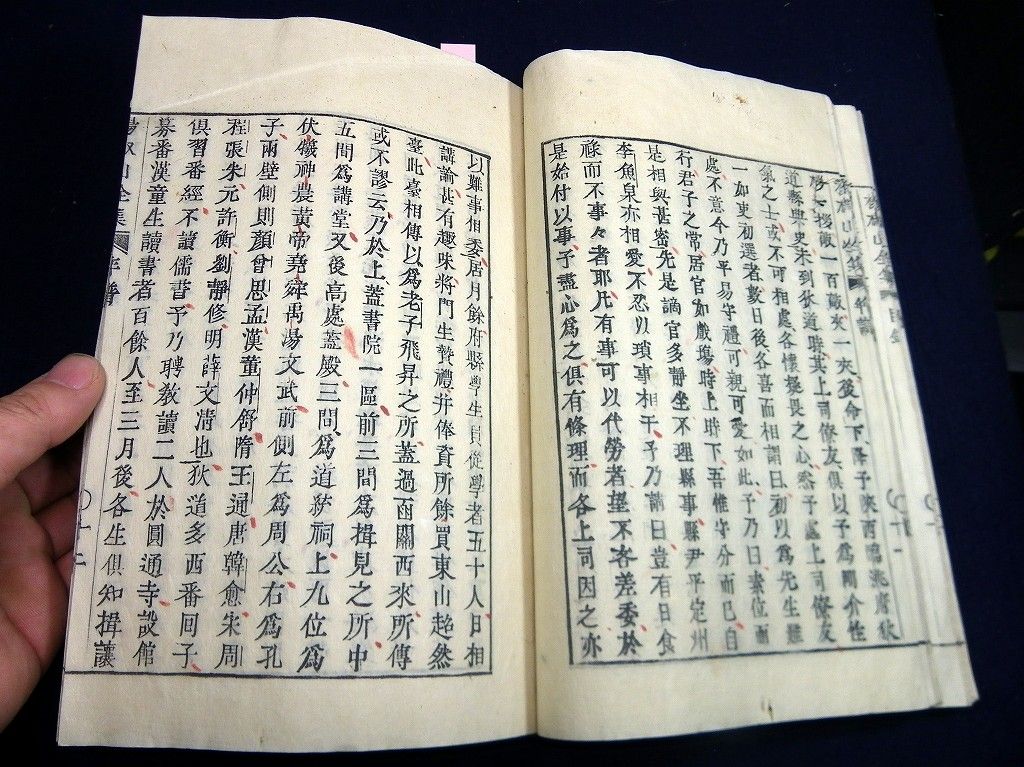 一拶敲一百敲夾一夾後命下降予陝西臨洮府狄
道縣典史未到狄道時其上司僚友俱以予爲剛介性
氣之士或不可相處各懷疑畏之心然予處上司僚友
一如吏初選者數日後各喜而相謂曰初以爲先生難
處不意今乃平易守禮可親可愛如此予乃曰素位而
行君子之常居官如戲塲時上時下吾惟守分而已自
是相與甚密先是謫官多靜坐不理縣事縣尹平定州
李魚泉亦相愛不忍以瑣事相干予乃謂曰豈有日食
祿而不事々者耶凡有事可以代勞者望不吝差委於
是始付以事予盡心爲之俱有條理而各上司因之亦
以難事相委居月餘府縣學生員從學者五十人日相
講論甚有趣味將門生贄禮并俸資所餘買東山超然
臺此臺相傳以爲老子飛昇之所蓋過函關西來所傳
或不謬云乃於上蓋書院一區前三間爲揖見之所中
五間爲講堂又後高處蓋殿三間爲道統祠上九位爲
伏羲神農黃帝堯舜禹湯文武前側左爲周公右爲孔
子兩壁側則顏曾思孟漢董仲舒隋王通唐韓愈宋周
程張朱元許衡劉靜修明薛文清也狄道多西番回子
俱習番經不讀儒書予乃聘教讀二人於圓通寺設館
募番漢童生讀書者百餘人至三月後各生俱知揖讓
山全集 年譜